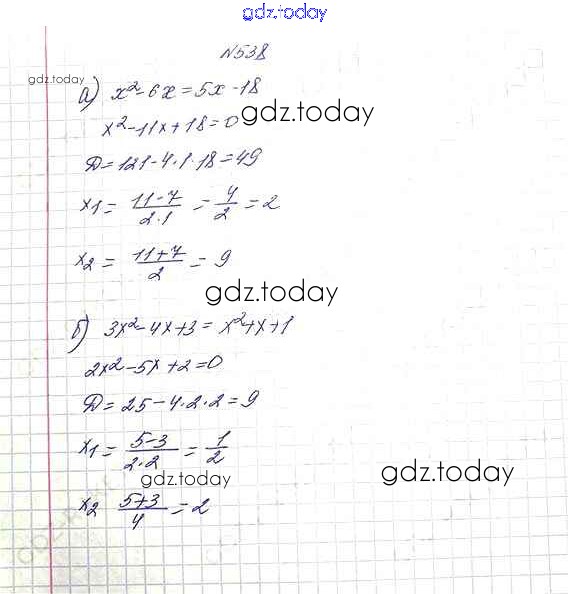 gdz.today
N538
gdz.today
а) x²-6x=5x-18
gdz.today
x²-11x+18=0
D=121-4·1·18=49
x1= 11-7/2·1 = 4/2 = 2
x2 = 11+7/2 = 9
gdz.today
б) 3x²-4x+3= x²+x+1
2x²-5x+2=0
D=25-4·2·2=9
x1= 5-3/2·2 = 1/2
gdz.today
gdz.today
x2 5+3/4 = 2